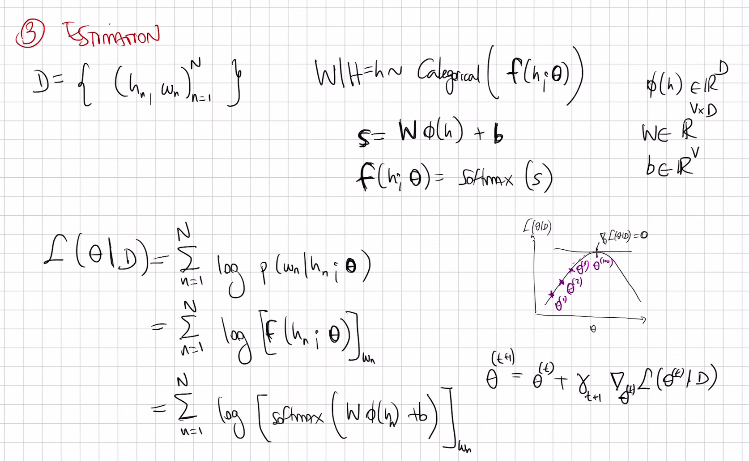 ③ ESTIMATION
D = { (hₙ, wₙ)ₙ₌₁ᴺ }
W|H=h ~ Categorical ( f(h; θ) )
s = W φ(h) + b
f(h; θ) = softmax (s)
φ(h) ∈ ℝ^D
W ∈ ℝ^{V×D}
b ∈ ℝ^V
ℒ(θ|D) = ∑_{n=1}^{N} log p(wₙ|hₙ; θ)
= ∑_{n=1}^{N} log [f(hₙ; θ)]_{wₙ}
= ∑_{n=1}^{N} log [softmax (W φ(hₙ) + b)]_{wₙ}
ℒ(θ|D)
ℒ(θ|D) = 0
θ^{(1)} θ^{(2)}
θ
θ^{(t+1)} = θ^{(t)} + γ_{t+1} ∇_{θ^{(t)}} ℒ(θ^{(t)}|D)